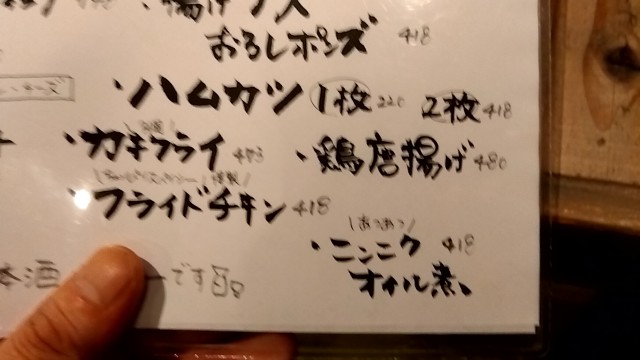 ・揚げナス
おろしポンズ 418
・ハムカツ 1枚 220 2枚 418
・カキフライ 473 ・鶏唐揚げ 480
・フライドチキン 418
\あつあつ/
・ニンニク 418
オイル煮。
本酒 ーです